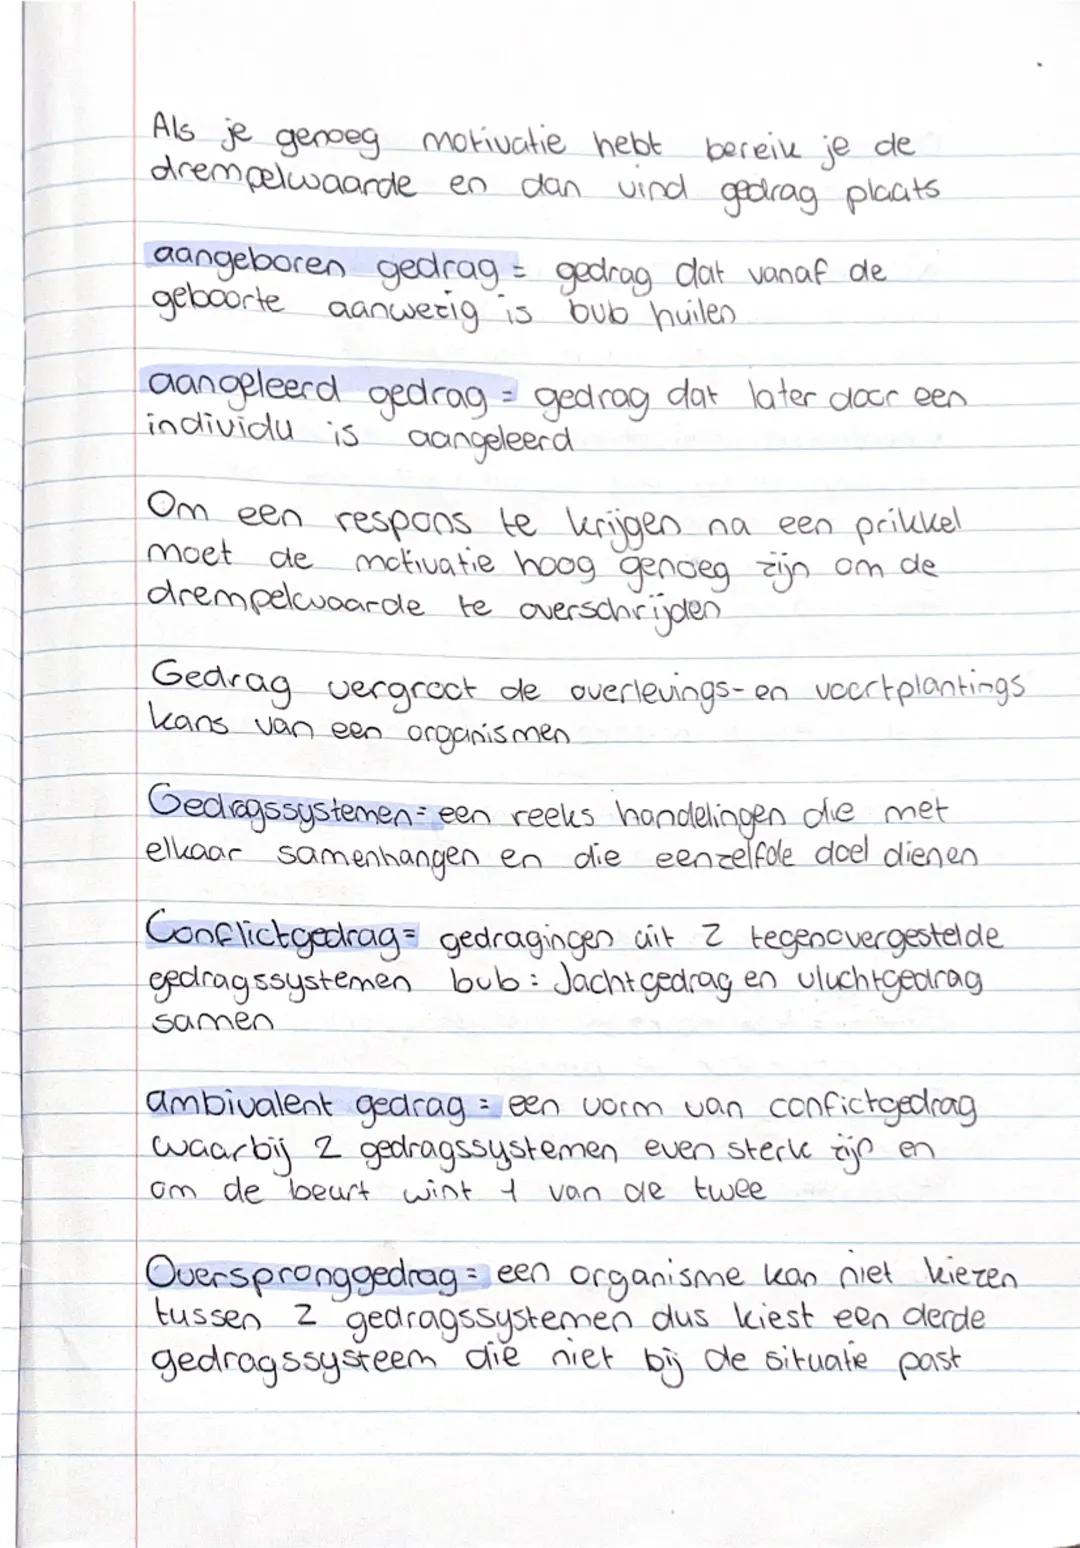 Als je genoeg motivatie hebt bereik je de
drempelwaarde en dan vind gedrag plaats
aangeboren gedrag = gedrag dat vanaf de
geboorte aanwezig is bvb huilen
aangeleerd gedrag = gedrag dat later door een
individu is aangeleerd
Om een respons te krijgen na een prikkel
moet de motivatie hoog genoeg zijn om de
drempelwaarde te overschrijden
Gedrag vergroot de overlevings- en voortplantings
kans van een organismen
Gedragssystemen = een reeks handelingen die met
elkaar samenhangen en die eenzelfde doel dienen
Conflictgedrag = gedragingen uit 2 tegenovergestelde
gedragssystemen bvb: Jachtgedrag en vluchtgedrag
samen
ambivalent gedrag = een vorm van confictgedrag
waarbij 2 gedragssystemen even sterk zijn en
om de beurt wint 1 van de twee
Overspronggedrag = een organisme kan niet kiezen
tussen 2 gedragssystemen dus kiest een derde
gedragssysteem die niet bij de situatie past